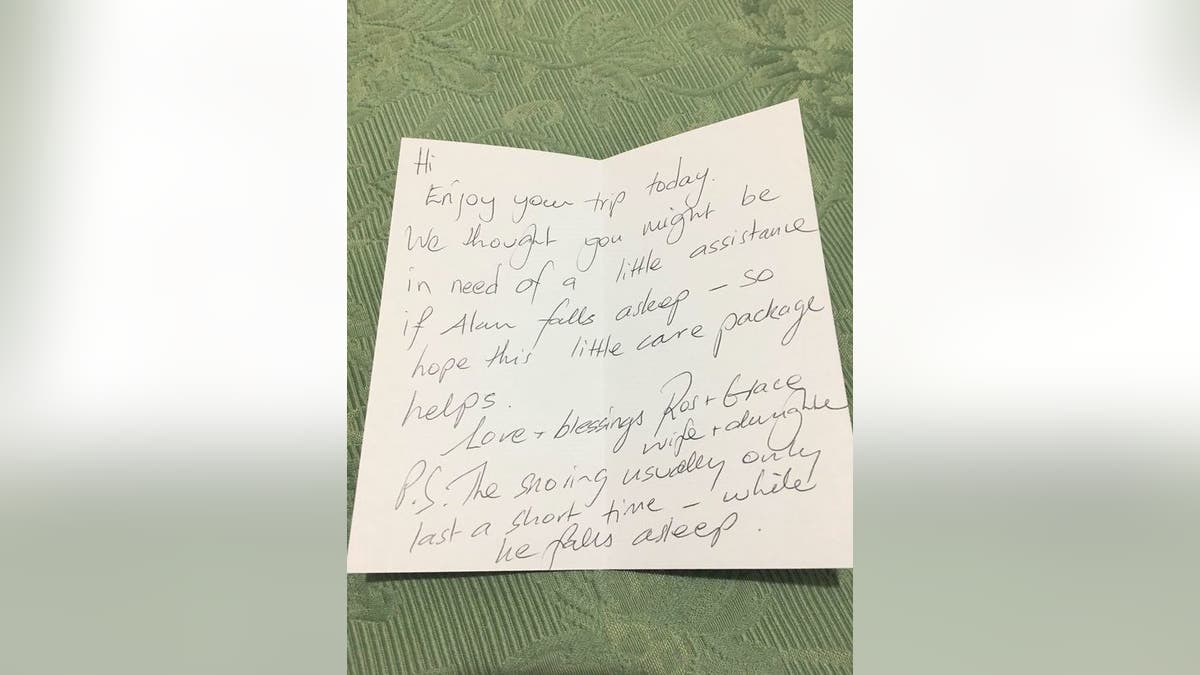 Hi
Enjoy your trip today.
We thought you might be
in need of a little assistance
if Alan falls asleep - so
hope this little care package
helps.
Love + blessings Ros + Grace
wife + daughte
P.S. The snoring usually only
last a short time - while
he falls asleep.